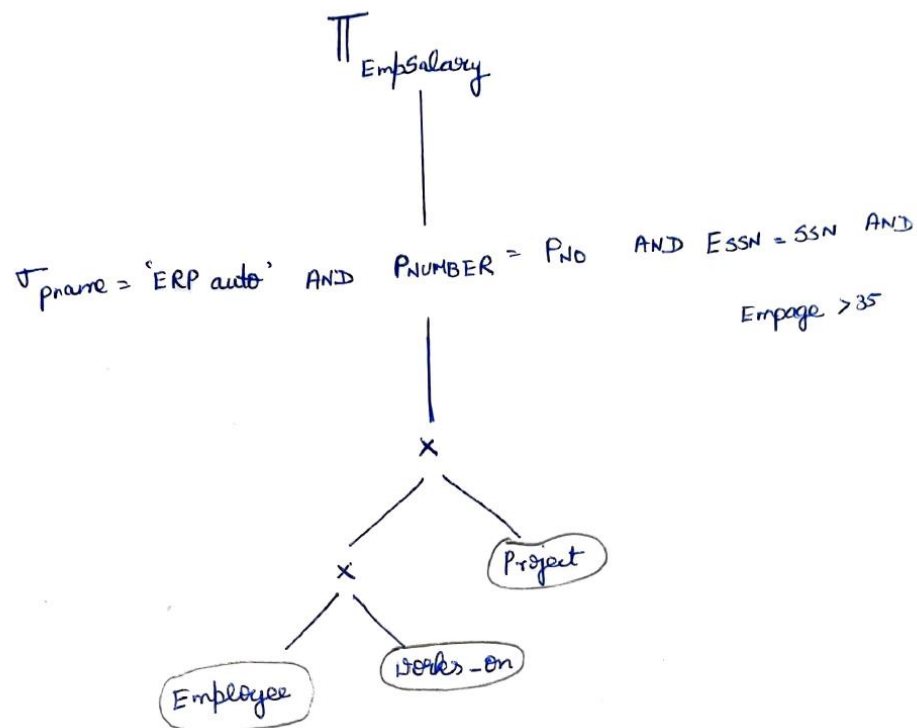 π EmpSalary
σ pname = 'ERP auto' AND PNUMBER = PNO AND ESSN = SSN AND
Empage >35
×
×
Project
Employee
works_on